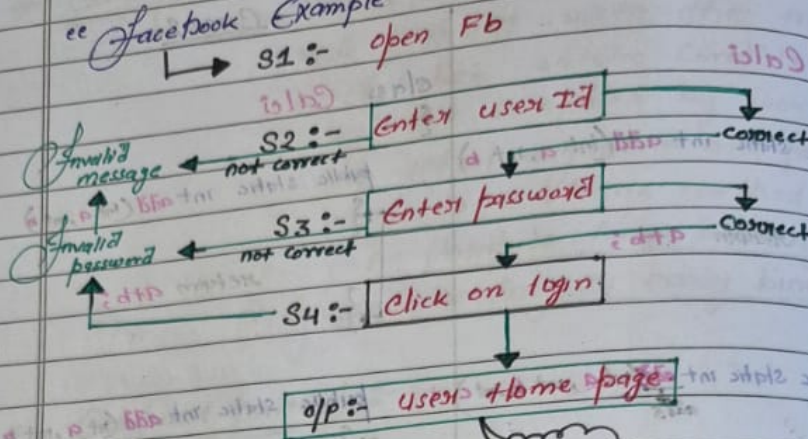 "Facebook Example
S1 :- open Fb
S2 :- Enter user Id
correct
not correct
Invalid
message
S3 :- Enter password
correct
not correct
Invalid
password
S4 :- Click on login
o/p :- users Home page